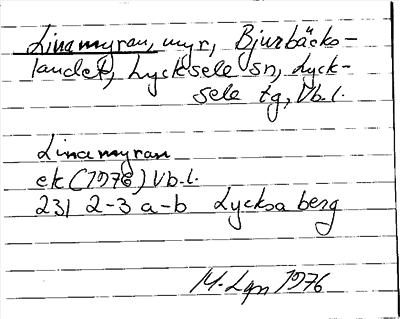 Linamyran, myr, Bjurbäcks-
landet, Lycksele sn, Lyck-
sele tg, Vb.l.
Linamyran
ek (1976) Vb.l.
231 2-3 a-b Lycksaberg
M. Lgn 1976